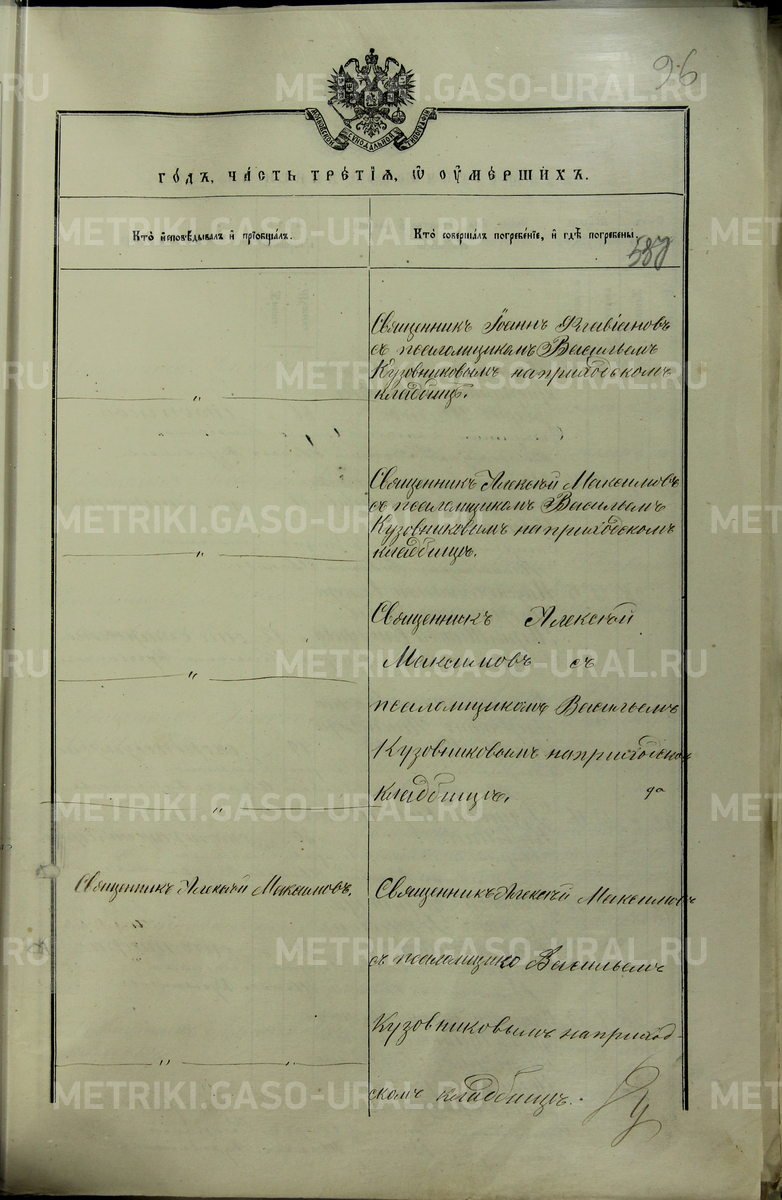 96
МОСКОВСКОЙ СѴНОДАЛЬНОЙ ТИПОГРАФІИ
го́дъ, ча́сть тре́тїѧ, ѡ҆ ᲂу҆ме́ршихъ.
Кто̀ и҆сповѣ́дывалъ и҆ прїѡбща́лъ.
Кто̀ соверша́лъ погребе́нїе, и҆ гдѣ̀ погребены̀.
587
Священникъ Іоаннъ Флавіановъ
съ псаломщикомъ Васильемъ
Кузовниковымъ на приходскомъ
кладбищѣ.
"
Священникъ Алексѣй Максимовъ
съ псаломщикомъ Васильемъ
Кузовниковымъ на приходскомъ
кладбищѣ.
"
Священникъ Алексѣй
Максимовъ съ
псаломщикомъ Васильемъ
Кузовниковымъ на приходском
кладбищѣ.
"
"
Священникъ Алексѣй Максимовъ.
Священникъ Алексѣй Максимовъ
съ псаломщико Васильемъ
Кузовниковымъ на приход-
скомъ кладбищѣ.
" "
METRIKI.GASO-URAL.RU